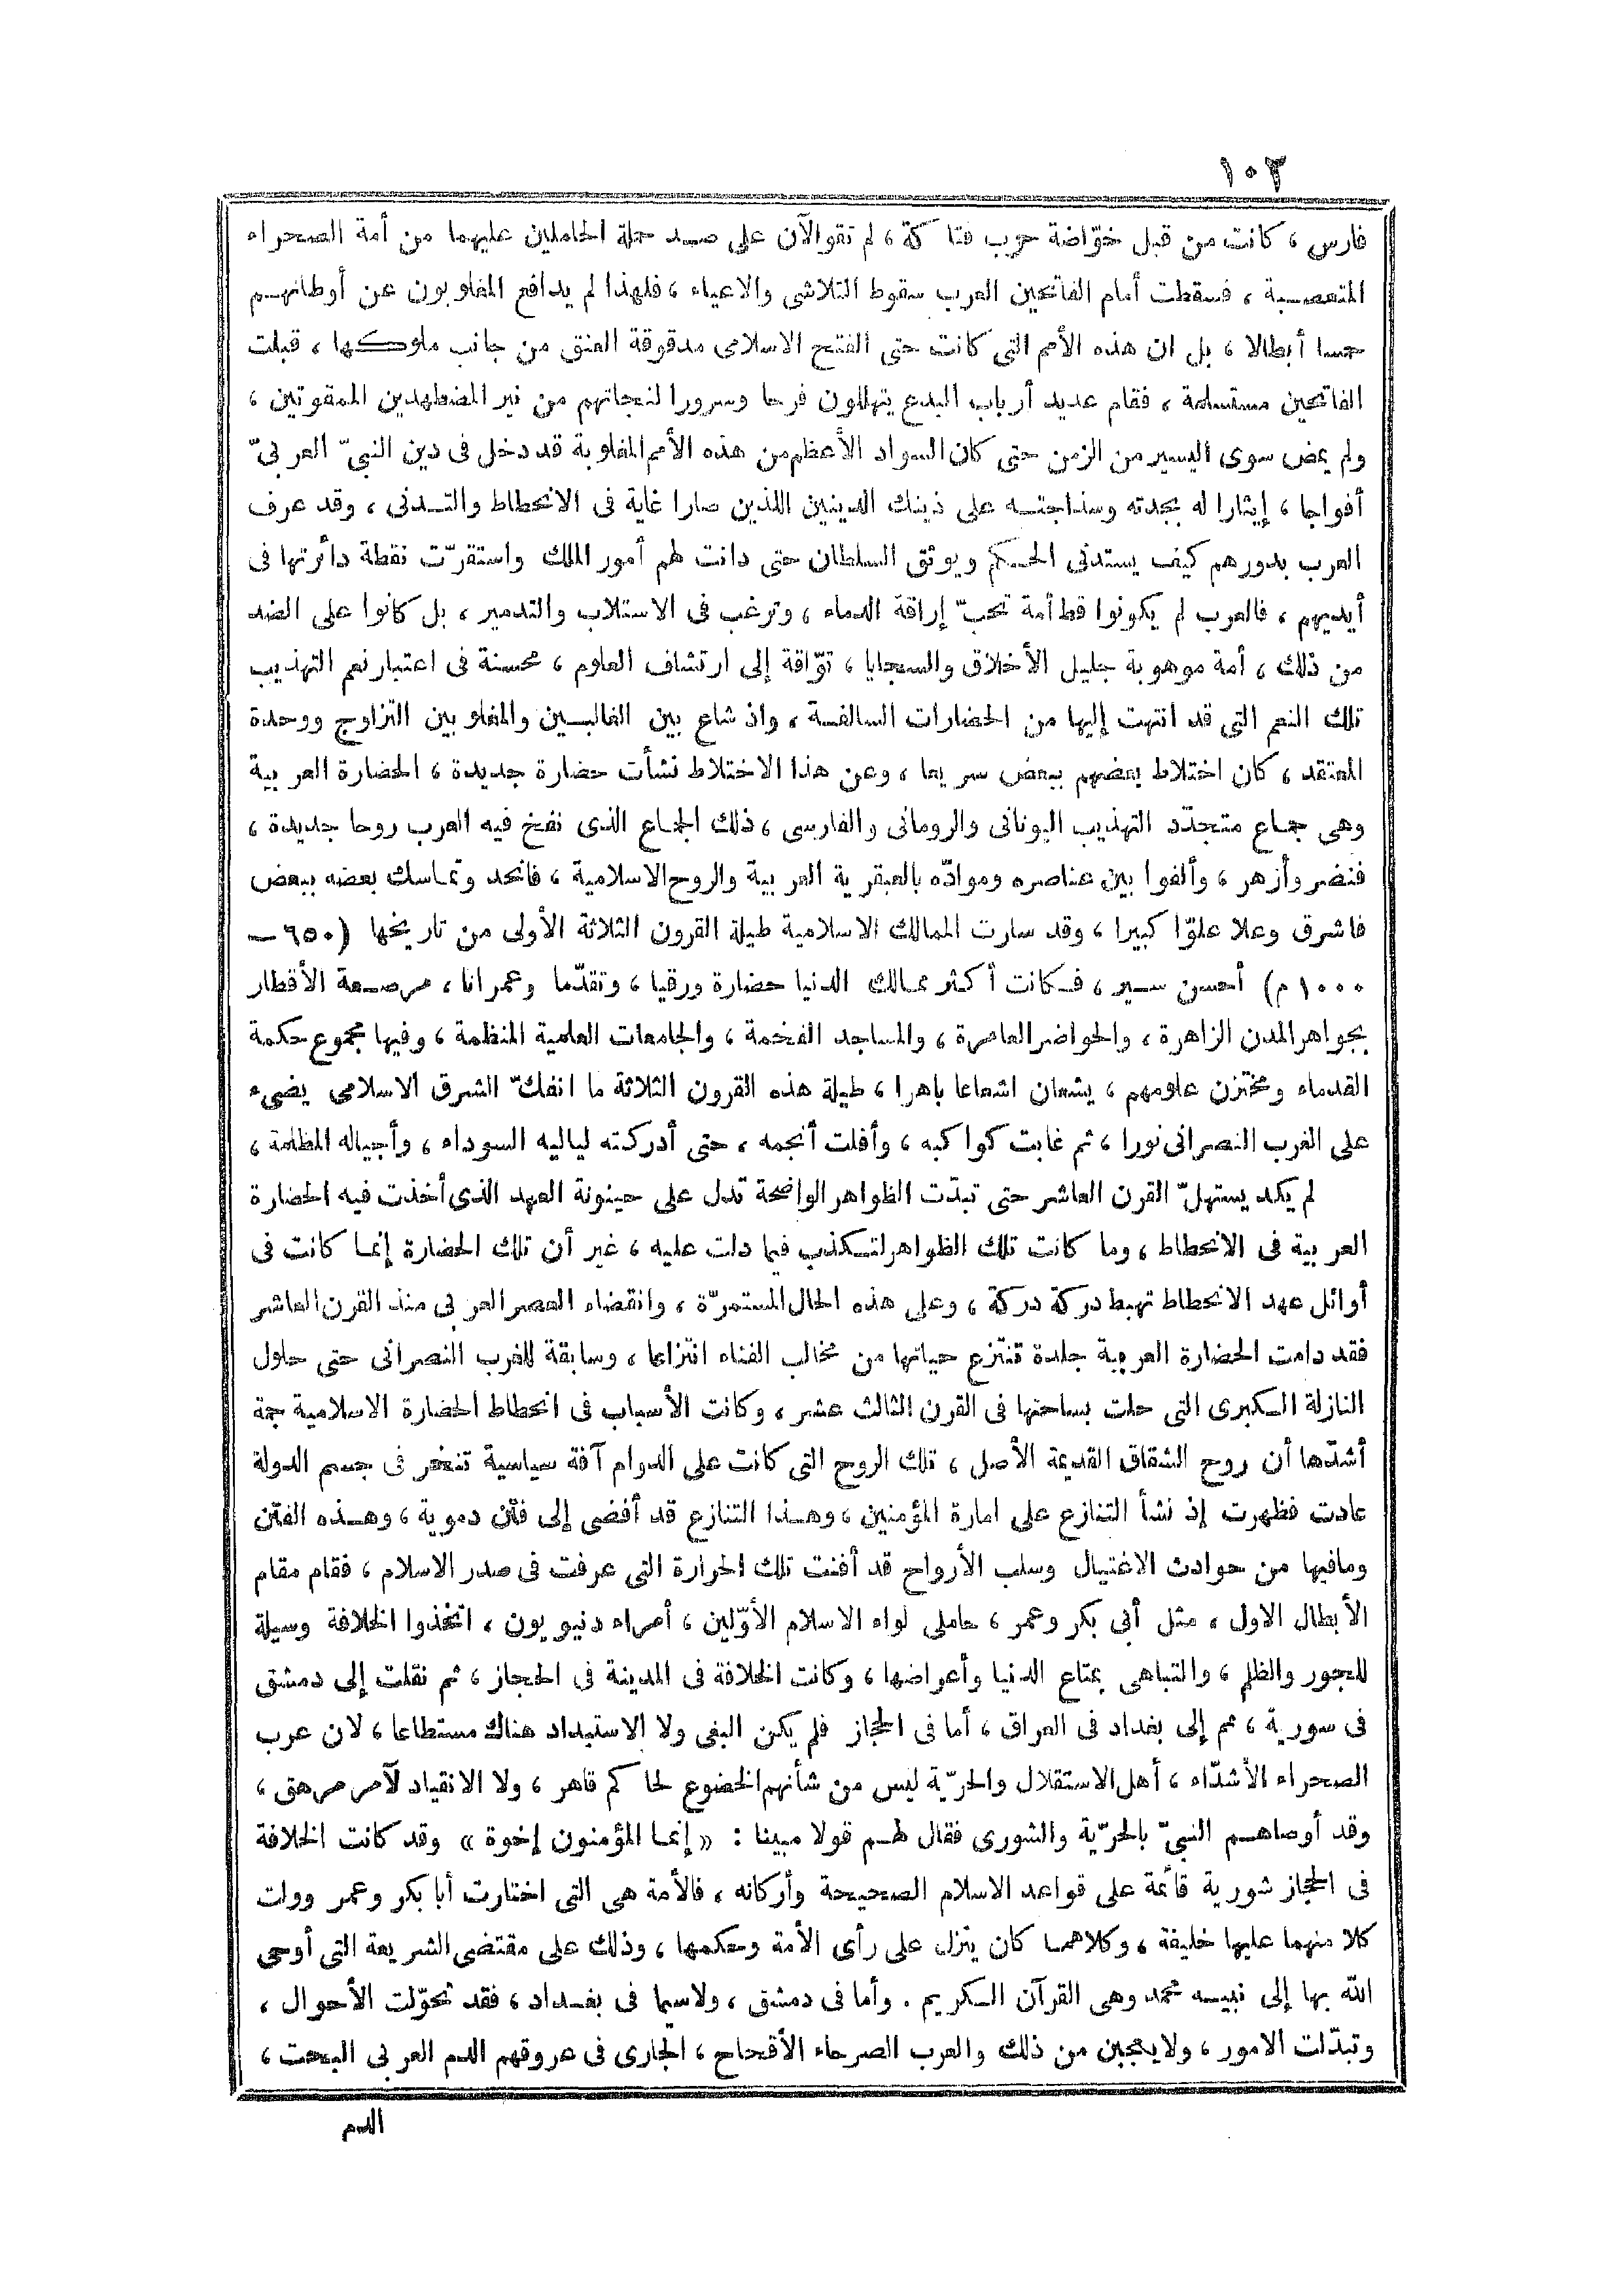 ١٠٢
فارس ، كانت من قبل خوّاضة حرب فتا كة ، لم تقو الآن على صد حملة الحاملين عليهما من أمة الصحراء
المتعصبة ، فسقطت أمام الفاتحين العرب سقوط التلاشى والاعياء ، فلهذا لم يدافع المغلوبون عن أوطانهم
حمسا أبطالا ، بل ان هذه الأمم التى كانت حتى الفتح الاسلامى مدقوقة العنق من جانب ملوكها ، قبلت
الفاتحين مستسلمة ، فقام عديد أرباب البدع يتهللون فرحا وسرورا لنجاتهم من نير المضطهدين الممقوتين ،
ولم يمض سوى اليسير من الزمن حتى كان السواد الأعظم من هذه الأمم المغلوبة قد دخل فى دين النبىّ العربىّ
أفواجا ، إيثارا له بجدته وسذاجته على ذينك الدينين اللذين صارا غاية فى الانحطاط والتدنى ، وقد عرف
العرب بدورهم كيف يستدنى الحكم ويوثق السلطان حتى دانت لهم أمور الملك واستقرّت نقطة دائرتها فى
أيديهم ، فالعرب لم يكونوا قط أمة تحبّ إراقة الدماء ، وترغب فى الاستلاب والتدمير ، بل كانوا على الضد
من ذلك ، أمة موهوبة جليل الأخلاق والسجايا ، توّاقة إلى ارتشاف العلوم ، محسنة فى اعتبار نعم التهذيب
تلك النعم التى قد انتهت إليها من الحضارات السالفة ، واذ شاع بين الغالبين والمغلوبين التزاوج ووحدة
المعتقد ، كان اختلاط بعضهم ببعض سريعا ، وعن هذا الاختلاط نشأت حضارة جديدة ، الحضارة العربية
وهى جماع متجدّد التهذيب اليونانى والرومانى والفارسى ، ذلك الجماع الذى نفخ فيه العرب روحا جديدة ،
فنضر وأزهر ، وألفوا بين عناصره وموادّه بالعبقرية العربية والروح الاسلامية ، فاتحد وتماسك بعضه ببعض
فاشرق وعلا علوّا كبيرا ، وقد سارت الممالك الاسلامية طيلة القرون الثلاثة الأولى من تاريخها (٦٥٠ –
١٠٠٠ م) أحسن سير ، فكانت أكثر ممالك الدنيا حضارة ورقيا ، وتقدّما وعمرانا ، مرصعة الأقطار
بجواهر المدن الزاهرة ، والحواضر العامرة ، والمساجد الفخمة ، والجامعات العلمية المنظمة ، وفيها مجموع حكمة
القدماء ومختزن علومهم ، يشعان اشعاعا باهرا ، طيلة هذه القرون الثلاثة ما انفكّ الشرق الاسلامى يضىء
على الغرب النصرانى نورا ، ثم غابت كواكبه ، وأفلت أنجمه ، حتى أدركته لياليه السوداء ، وأجياله المظلمة ،
لم يكد يستهلّ القرن العاشر حتى تبدّت الظواهر الواضحة تدل على حينونة العهد الذى أخذت فيه الحضارة
العربية فى الانحطاط ، وما كانت تلك الظواهر لتكذب فيما دلت عليه ، غير أن تلك الحضارة إنما كانت فى
أوائل عهد الانحطاط تهبط دركة دركة ، وعلى هذه الحال المستمرّة ، وانقضاء العصر العربى منذ القرن العاشر
فقد دامت الحضارة العربية جلدة تنتزع حياتها من مخالب الفناء انتزاعا ، وسابقة للغرب النصرانى حتى حلول
النازلة الكبرى التى حلت بساحتها فى القرن الثالث عشر ، وكانت الأسباب فى انحطاط الحضارة الاسلامية جمة
أشدّها أن روح الشقاق القديمة الأصل ، تلك الروح التى كانت على الدوام آفة سياسية تنخر فى جسم الدولة
عادت فظهرت إذ نشأ التنازع على امارة المؤمنين ، وهذا التنازع قد أفضى إلى فتن دموية ، وهذه الفتن
ومافيها من حوادث الاغتيال وسلب الأرواح قد أفنت تلك الحرارة التى عرفت فى صدر الاسلام ، فقام مقام
الأبطال الاول ، مثل أبى بكر وعمر ، حاملى لواء الاسلام الأوّلين ، أمراء دنيويون ، اتخذوا الخلافة وسيلة
للجور والظلم ، والتباهى بمتاع الدنيا وأعراضها ، وكانت الخلافة فى المدينة فى الحجاز ، ثم نقلت إلى دمشق
فى سورية ، ثم إلى بغداد فى العراق ، أما فى الحجاز فلم يكن البغى ولا الاستبداد هناك مستطاعا ، لان عرب
الصحراء الأشدّاء ، أهل الاستقلال والحرّية ليس من شأنهم الخضوع لحا كم قاهر ، ولا الانقياد لآمر مرهق ،
وقد أوصاهم النبىّ بالحرّية والشورى فقال لهم قولا مبينا : «إنما المؤمنون إخوة» وقد كانت الخلافة
فى الحجاز شورية قائمة على قواعد الاسلام الصحيحة وأركانه ، فالأمة هى التى اختارت أبا بكر وعمر وولت
كلا منهما عليها خليفة ، وكلاهما كان ينزل على رأى الأمة وحكمها ، وذلك على مقتضى الشريعة التى أوحى
الله بها إلى نبيه محمد وهى القرآن الكريم . وأما فى دمشق ، ولاسيما فى بغداد ، فقد تحوّلت الأحوال ،
وتبدّلت الامور ، ولايعجبن من ذلك والعرب الصرحاء الأقحاح ، الجارى فى عروقهم الدم العربى البحت ،
الدم